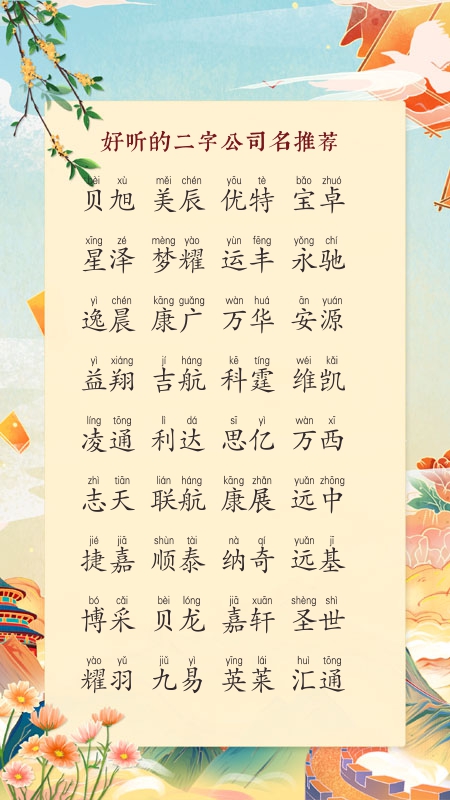 好听的二字公司名推荐
bèi xù měi chén yōu tè bǎo zhuó
贝旭 美辰 优特 宝卓
xīng zé mèng yào yùn fēng yǒng chí
星泽 梦耀 运丰 永驰
yì chén kāng guǎng wàn huá ān yuán
逸晨 康广 万华 安源
yì xiáng jí háng kē tíng wéi kǎi
益翔 吉航 科霆 维凯
líng tōng lì dá sī yì wàn xī
凌通 利达 思亿 万西
zhì tiān lián háng kāng zhǎn yuǎn zhōng
志天 联航 康展 远中
jié jiā shùn tài nà qí yuǎn jī
捷嘉 顺泰 纳奇 远基
bó cǎi bèi lóng jiā xuān shèng shì
博采 贝龙 嘉轩 圣世
yào yǔ jiǔ yì yīng lái huì tōng
耀羽 九易 英莱 汇通